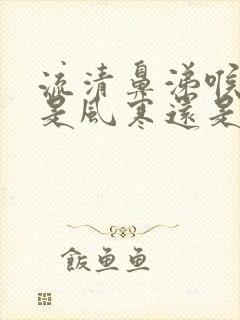 流清鼻涕喉
是風寒還是
飯魚魚